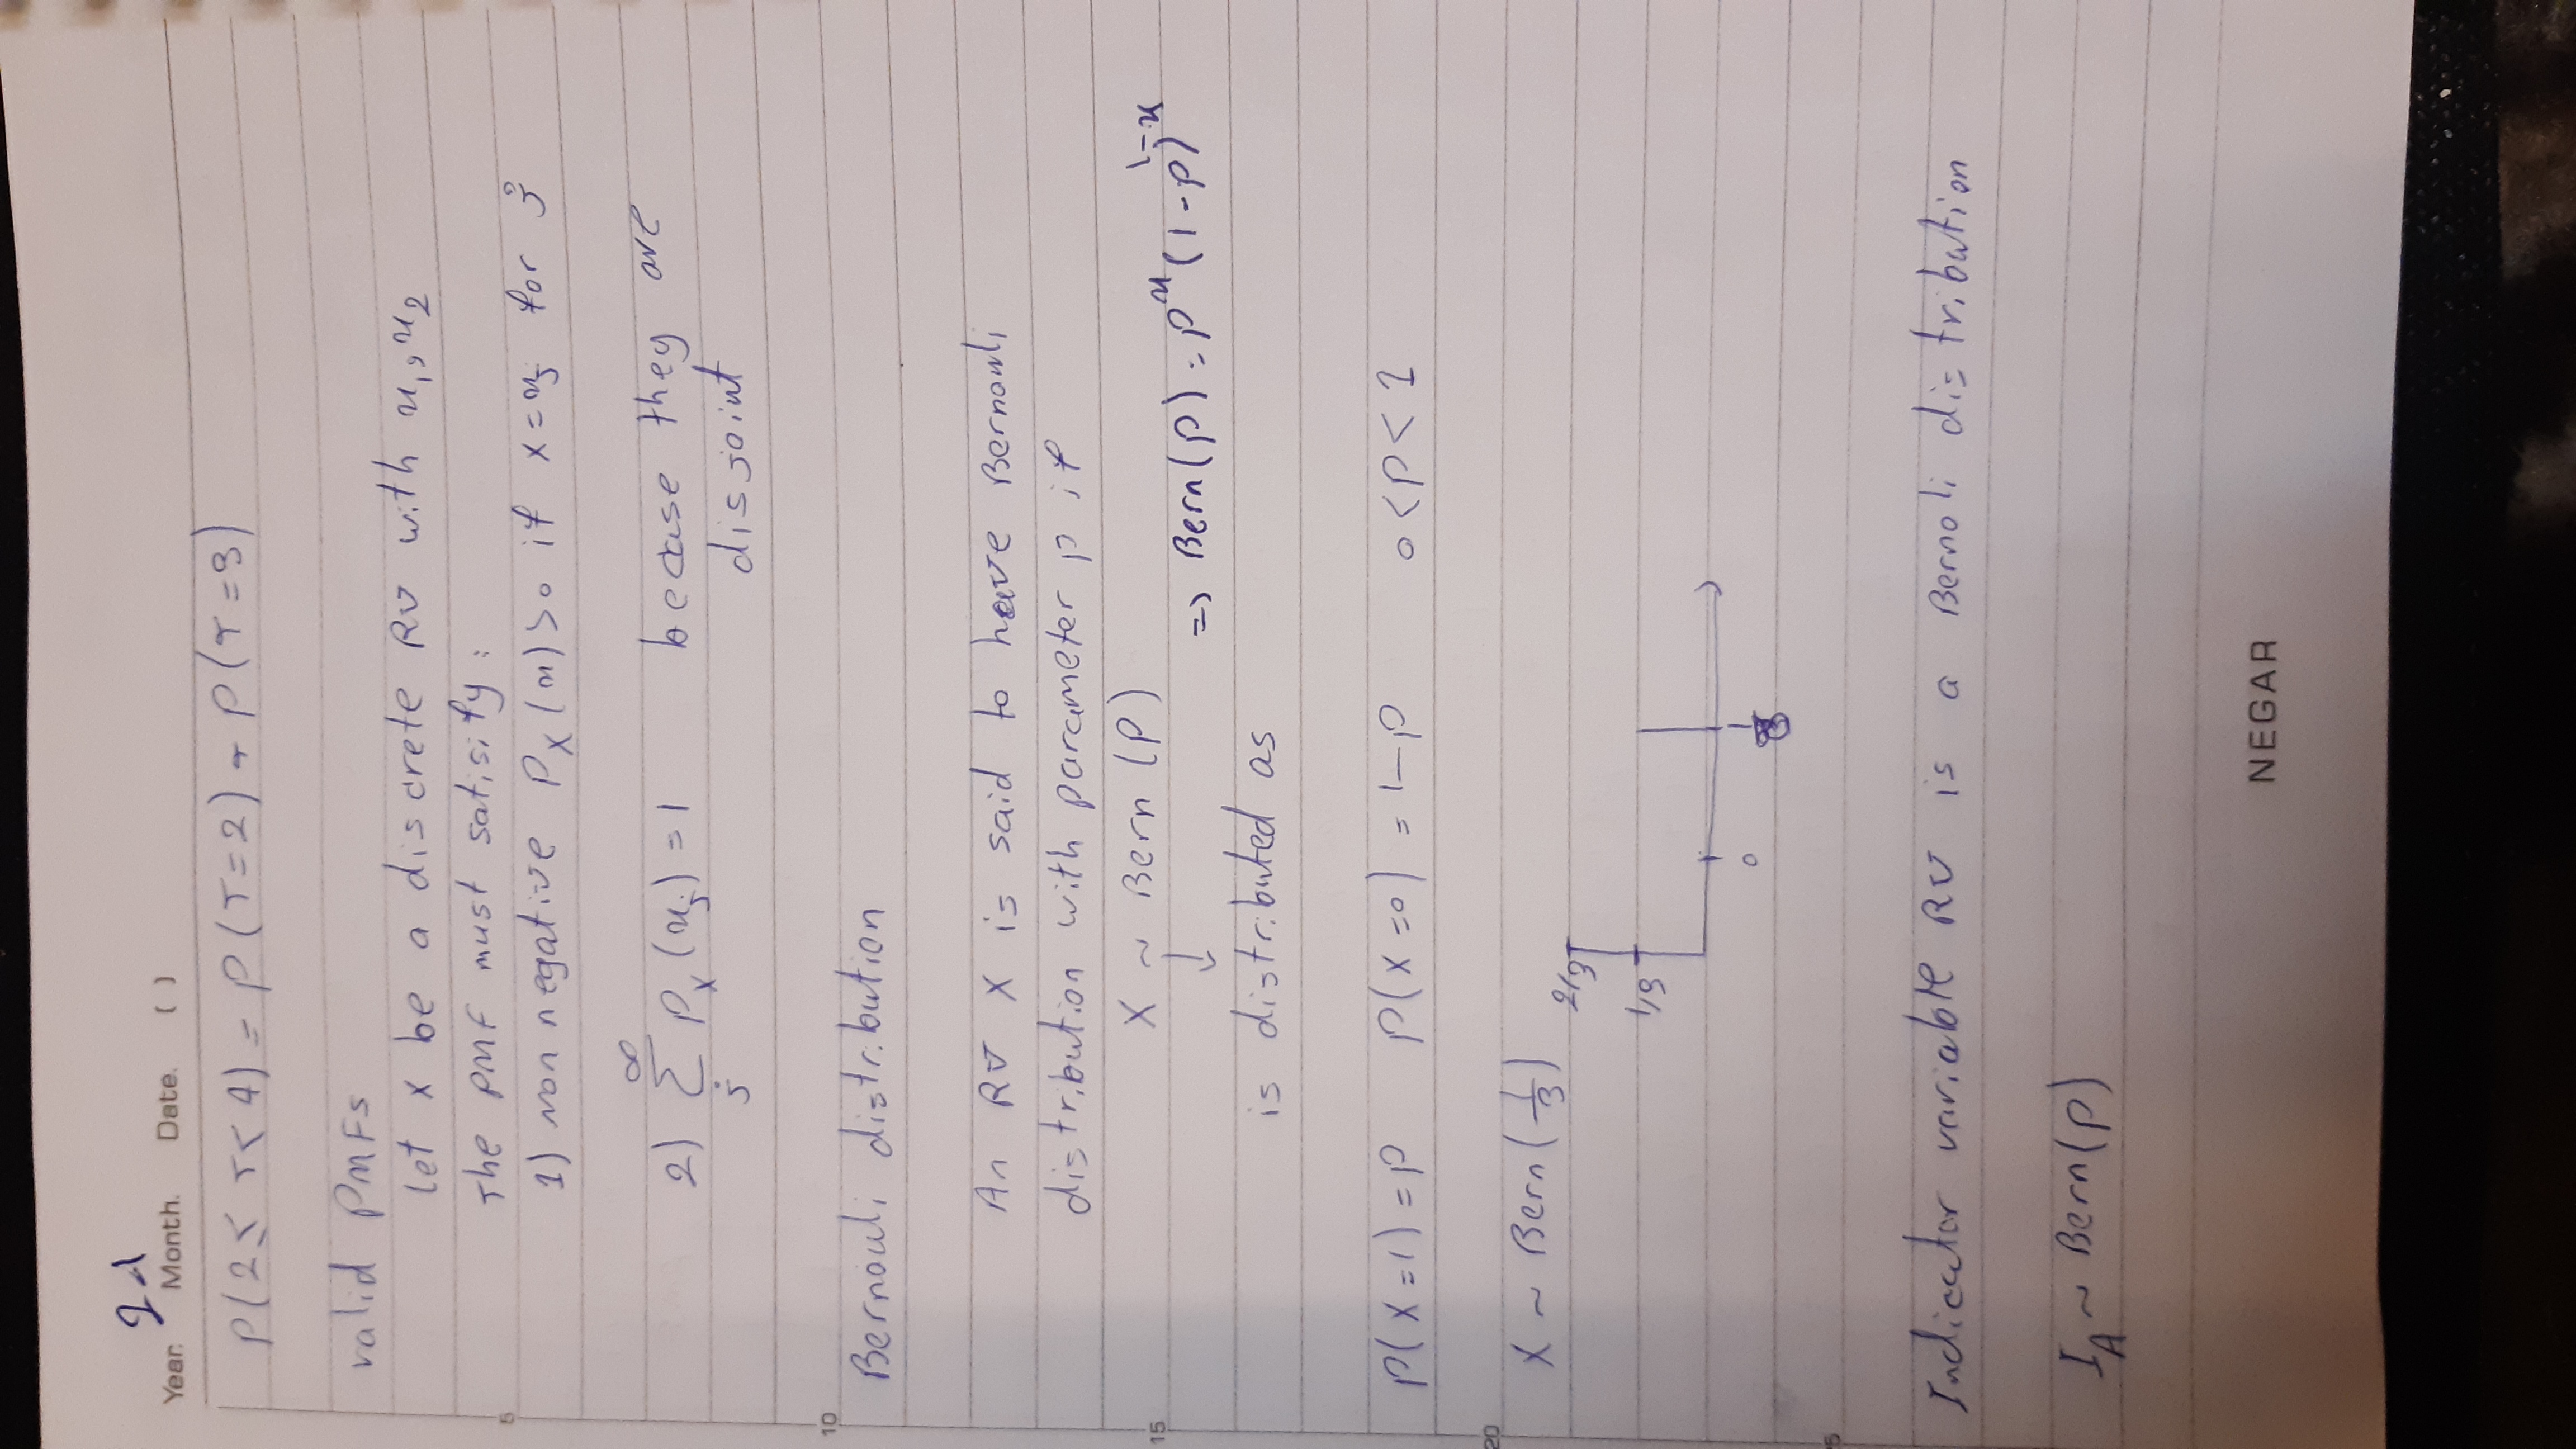 21
Year. Month. Date. ( )
P(2 ≤ T < 4) = P(T=2) + P(T=3)
valid PMFs
Let x be a discrete RV with x₁, x₂
5
The PMF must satisify:
1) non negative P_X(x)>0 if X=x_j for j
2) ∑_j^∞ P_X(x_j) = 1 becase they are
disjoint
10
Bernouli distribution
An RV X is said to have Bernouli
distribution with parameter p if
X ~ Bern (P)
15
=> Bern(p) = p^x (1-p)^1-x
↓
is distributed as
P(X=1) = p P(X=0) = 1-p 0<p<1
20
X ~ Bern(1/3)
2/3
1/3
0 1
Indicator variable RV is a Bernoli distribution
I_A ~ Bern(p)
NEGAR